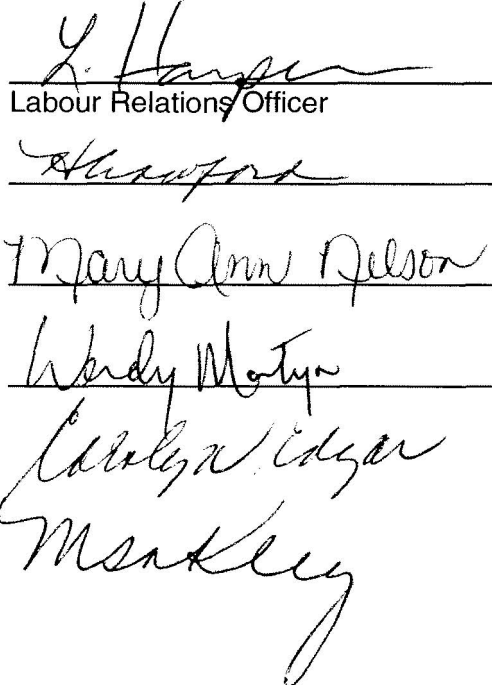 L. Harper
Labour Relations Officer
H Crawford
Mary Ann Nelson
Wendy Martyn
Carolyn Edgar